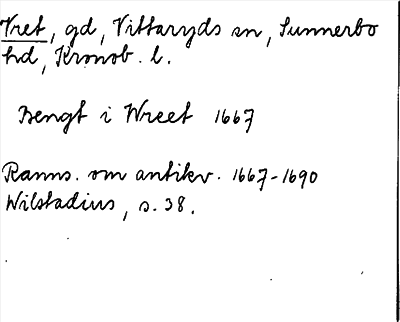 Vret, gd, Vittaryds sn, Sunnerbo
hd, Kronob. l.
Bengt i Wreet 1667
Ranns. om antikv. 1667-1690
Wilstadius, s. 38.